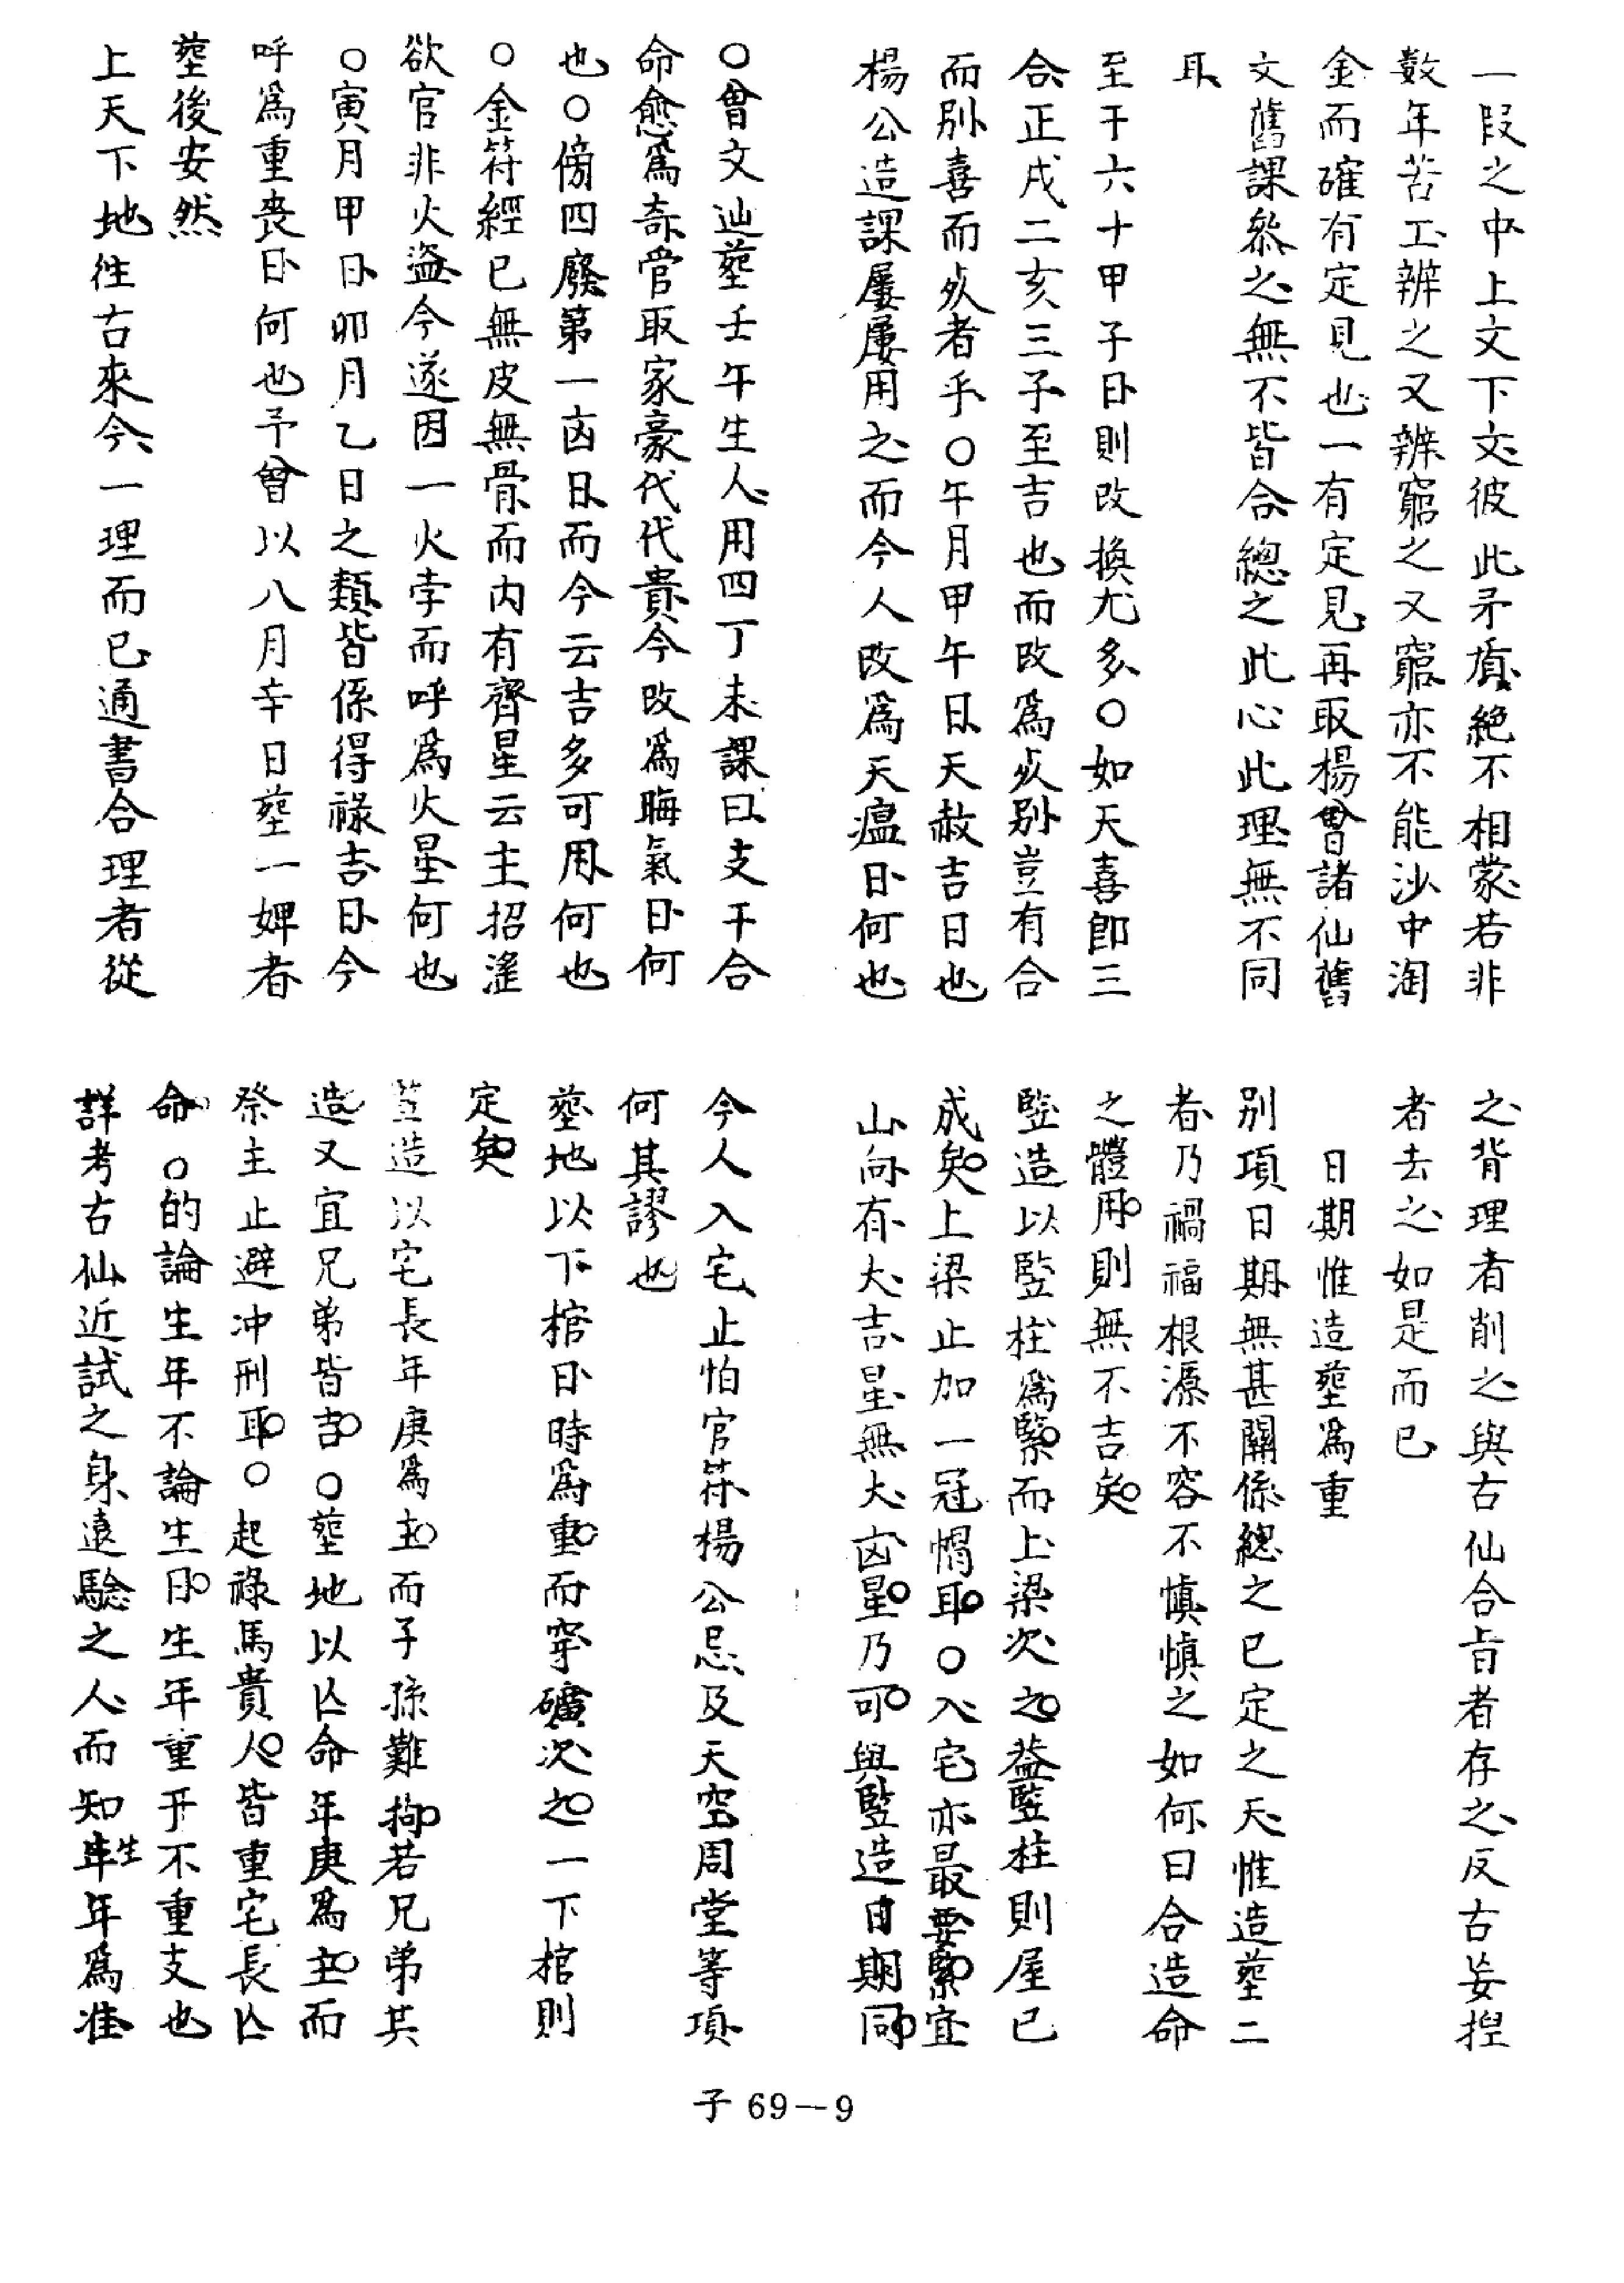 一叚之中上文下文彼此矛盾絶不相蒙若非
數年苦工辨之又辨窮之又窮亦不能沙中淘
金而確有定見也一有定見再取楊曾諸仙舊
文舊課叅之無不皆合總之此心此理無不同
耳
至于六十甲子日則改換尤多○如天喜卽三
合正戌二亥三子至吉也而改爲㱔别豈有合
而别喜而㱔者乎○午月甲午日天赦吉日也
楊公造課屢屢用之而今人改爲天瘟日何也
○曾文辿塟壬午生人用四丁未課曰支干合
命愈爲奇管取家豪代代貴今改爲晦氣日何
也○傍四廢第一凶日而今云吉多可用何也
○金符經已無皮無骨而内有齊星云主招滛
欲官非火盜今遂因一火字而呼爲火星何也
○寅月甲日卯月乙日之類皆係得祿吉日今
呼爲重喪日何也予曾以八月辛日塟一婢者
塟後安然
上天下地徃古來今一理而已通書合理者從
之背理者削之與古仙合旨者存之反古妄揑
者去之如是而已
日期惟造塟爲重
别項日期無甚關係總之已定之天惟造塟二
者乃禍福根源不容不愼愼之如何曰合造命
之體用則無不吉矣
竪造以竪柱爲緊而上梁次之葢竪柱則屋已
成矣上梁止加一冠帽耳○入宅亦最要緊宜
山向有大吉星無大凶星乃可與竪造日期同
今人入宅止怕官符楊公忌及天空周堂等項
何其謬也
塟地以下棺日時爲重而穿礦次之一下棺則
定矣
竪造以宅長年庚爲主而子孫難拘若兄弟其
造又宜兄弟皆吉○塟地以亾命年庚爲主而
祭主止避冲刑耳○起祿馬貴人皆重宅長亾
命○的論生年不論生日生年重干不重支也
詳考古仙近試之身遠驗之人而知生年爲准
子 69—9